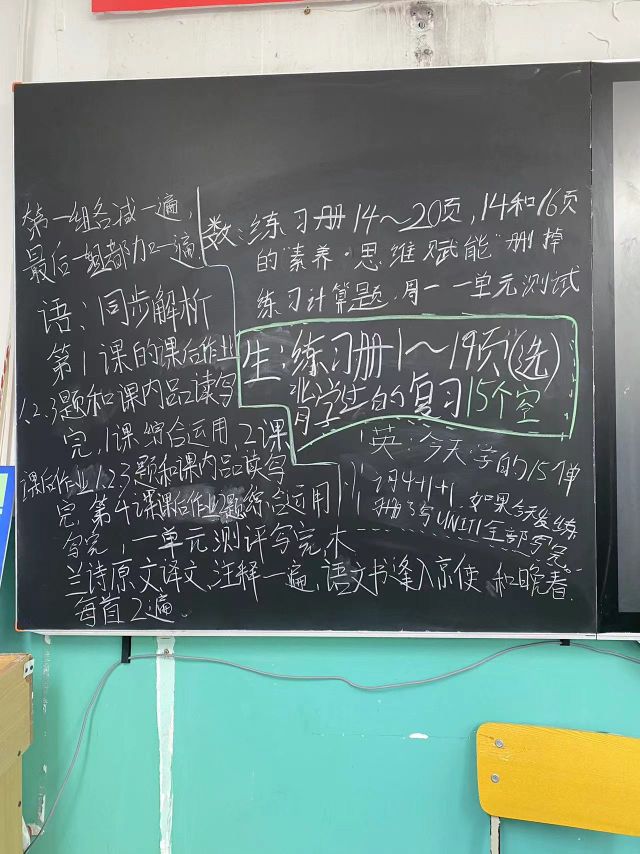 第一组各减一遍,
最后一组都加一遍
语:同步解析
第1课的课后作业
1.2.3题和课内品读写
完,1课综合运用,2课
课后作业1.2.3题和课内品读写
完 第4课课后作业题综合运用
写完,一单元测评写完,木
兰诗原文译文,注释一遍,语文书逢入京使 和晚春
每首2遍.
数:练习册14~20页,14和16页
的"素养·思维赋能"删掉
练习计算题,周一一单元测试
生:练习册1~19页(选)
背学过的复习15个空
英:今天学的15个单
词4+1+1 如果今天发练
册了写UNIT1全部写完